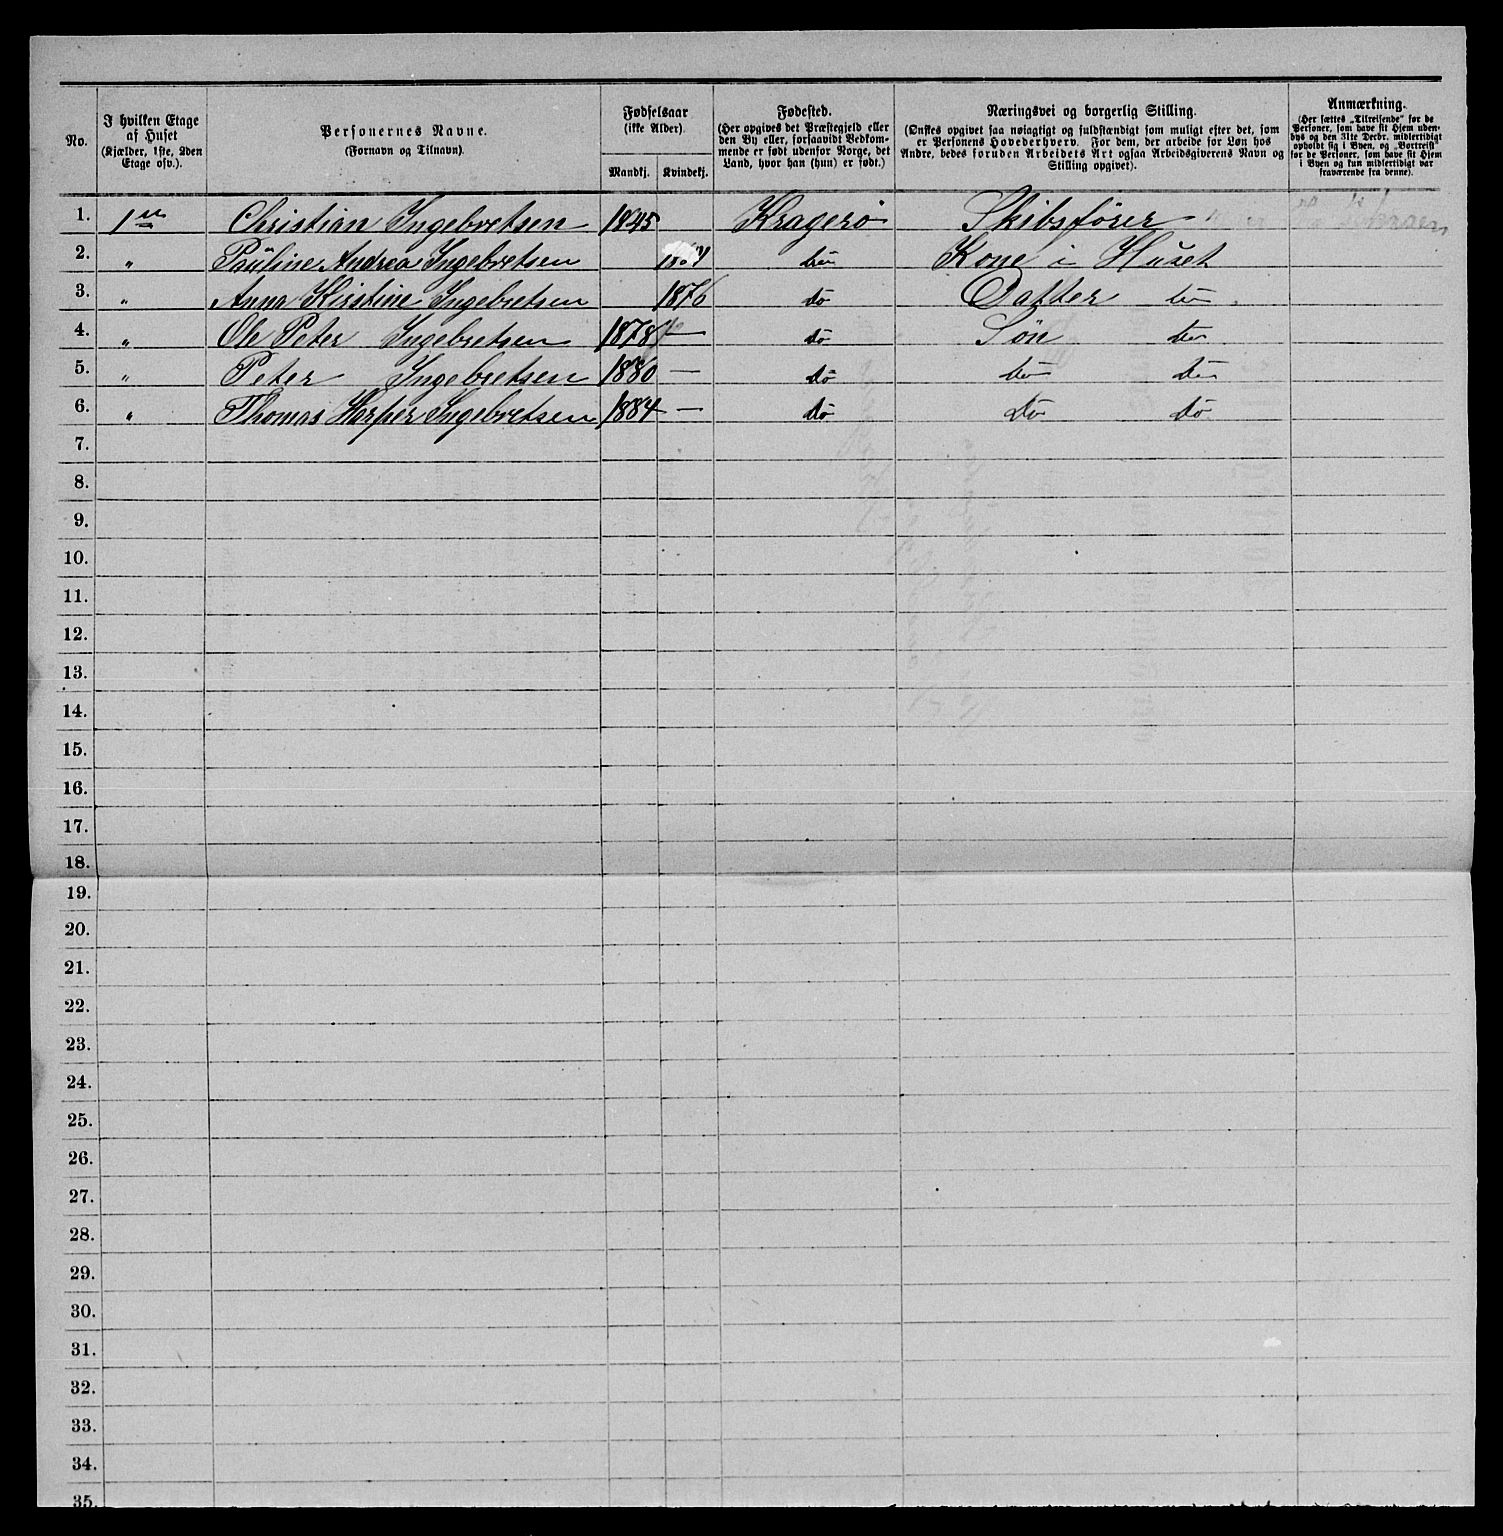 No.
I hvilken Etage
af Huset
(Kjælder, 1ste, 2den
Etage osv.).
Personernes Navne.
(Fornavn og Tilnavn).
Fødselsaar
(ikke Alder).
Mandkj. Kvindekj.
Fødested.
(Her opgives det Præstegjeld eller
den By eller, forsaavidt Vedkom-
mende er født udenfor Norge, det
Land, hvor han (hun) er født.)
Næringsvei og borgerlig Stilling.
(Ønskes opgivet saa nøiagtigt og fuldstændigt som muligt efter det, som
er Personens Hovederhverv. For dem, der arbeide for Løn hos
Andre, bedes foruden Arbeidets Art ogsaa Arbeidsgiverens Navn og
Stilling opgivet).
Anmærkning.
(Her sættes „Tilreisende“ for de
Personer, som have sit Hjem uden-
bys og den 31te Decbr. midlertidigt
opholdt sig i Byen, og „Bortreist“
for de Personer, som have sit Hjem
i Byen og kun midlertidigt var
fraværende fra denne).
1. 1ste Christian Ingebretsen 1845 Kragerø Skibsfører
2. " Pauline Andrea Ingebretsen do Kone i Huset
3. " Anna Kirstine Ingebretsen 1876 do Datter do
4. " Ole Peter Ingebretsen 1878 — do Søn do
5. " Peter Ingebretsen 1880 — do do do
6. " Thomas Ingebretsen 1884 — do do do
7.
8.
9.
10.
11.
12.
13.
14.
15.
16.
17.
18.
19.
20.
21.
22.
23.
24.
25.
26.
27.
28.
29.
30.
31.
32.
33.
34.
35.